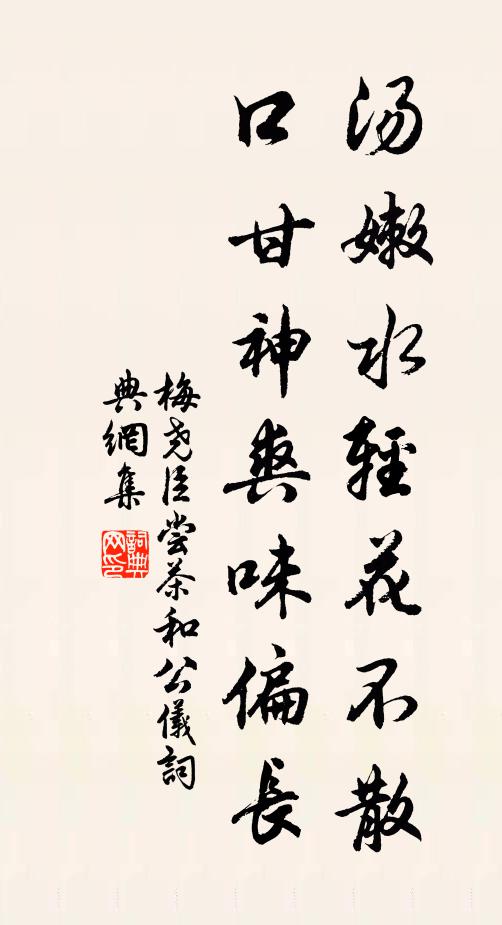 汤嫩水輕花不散
口甘神爽味偏長
梅尧臣尝茶和公儀詞
典網集
詞典
网印